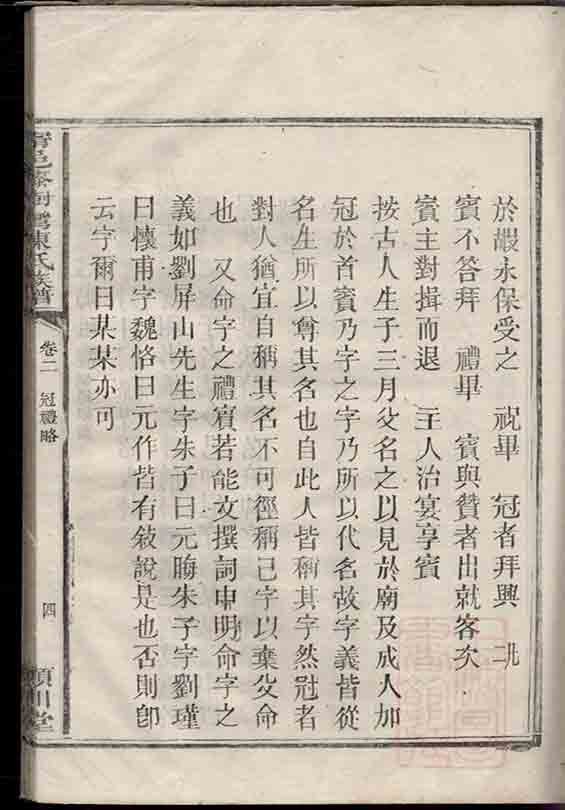 於嘏永保受之　祝畢　冠者拜興
賓不答拜　禮畢　賓與贊者出就客次
賓主對揖而退　主人治宴享賓
按古人生子三月父名之以見於廟及成人加
冠於首賓乃字之字乃所以代名故字義皆從
名生所以尊其名也自此人皆稱其字然冠者
對人猶宜自稱其名不可徑稱己字以棄父命
也　又命字之禮賓若能文撰詞申明命字之
義如劉屏山先生字朱子曰元晦朱子字劉瑾
曰懷甫字魏恪曰元作皆有敍說是也否則卽
云字爾曰某某亦可
陳氏族譜
卷二　冠禮略
四
潁川堂